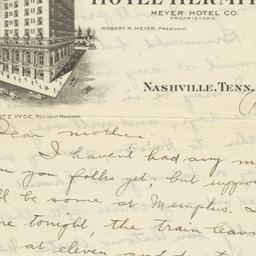 HOTEL HERMIT
MEYER HOTEL CO.
PROPRIETORS
ROBERT R. MEYER, PRESIDENT
NASHVILLE, TENN.
E. HYDE, RESIDENT MANAGER.
Dear mother:
I haven't had any m
you folks yet, but supp
be some at Memphis. I
tonight, the train leav
at eleven and